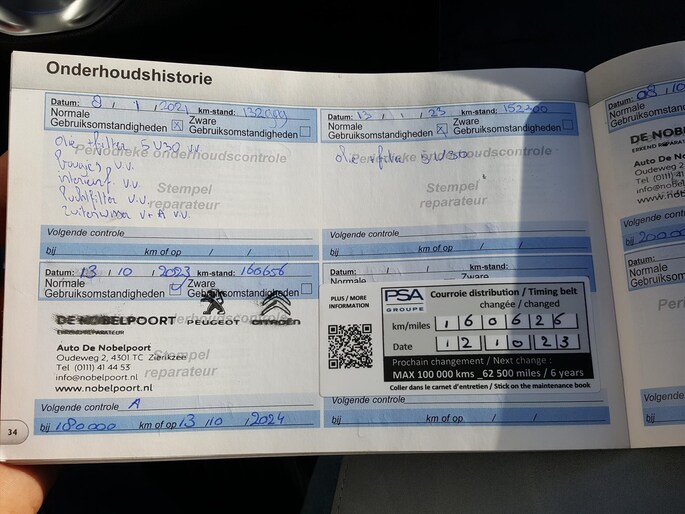 Onderhoudshistorie
Datum: 8 / 1 / 2021 km-stand: 132099
Normale Gebruiksomstandigheden ☒ Zware Gebruiksomstandigheden ☐
olie + filter 5W30 vv
Periodieke onderhoudscontrole
bougies v.v.
interieurf v.v.
luchtfilter v.v.
v.v.
Stempel
reparateur
Volgende controle
bij km of op / /
Datum: 13 / 1 / 23 km-stand: 152200
Normale Gebruiksomstandigheden ☒ Zware Gebruiksomstandigheden ☐
olie + filter 5W30
Periodieke onderhoudscontrole
Stempel
reparateur
Volgende controle
bij km of op / /
Datum: 13 / 10 / 2023 km-stand: 160656
Normale Gebruiksomstandigheden Zware Gebruiksomstandigheden
DE NOBELPOORT
PEUGEOT CITROËN
Auto De Nobelpoort
Oudeweg 2, 4301 TC Zierikzee
Tel (0111) 41 44 53
info@nobelpoort.nl
www.nobelpoort.nl
Stempel
reparateur
Volgende controle A
bij 180000 km of op 13 / 10 / 2024
Zware
PLUS / MORE
INFORMATION
PSA
GROUPE
Courroie distribution / Timing belt
changée / changed
km/miles 160626
Date 121023
Prochain changement / Next change :
MAX 100 000 kms _62 500 miles / 6 years
Coller dans le carnet d'entretien / Stick on the maintenance book
Volgende controle
bij km of op / /
34
Datum: 08 / 10
Normale
Gebruiksomstan
DE NOB
Auto De No
Oudeweg 2
Tel (0111) 41
info@nobel
www.nob
Volgende
bij 200.00
Datum:
Normale
Gebruiksomstan
Peri
Volgende
bij